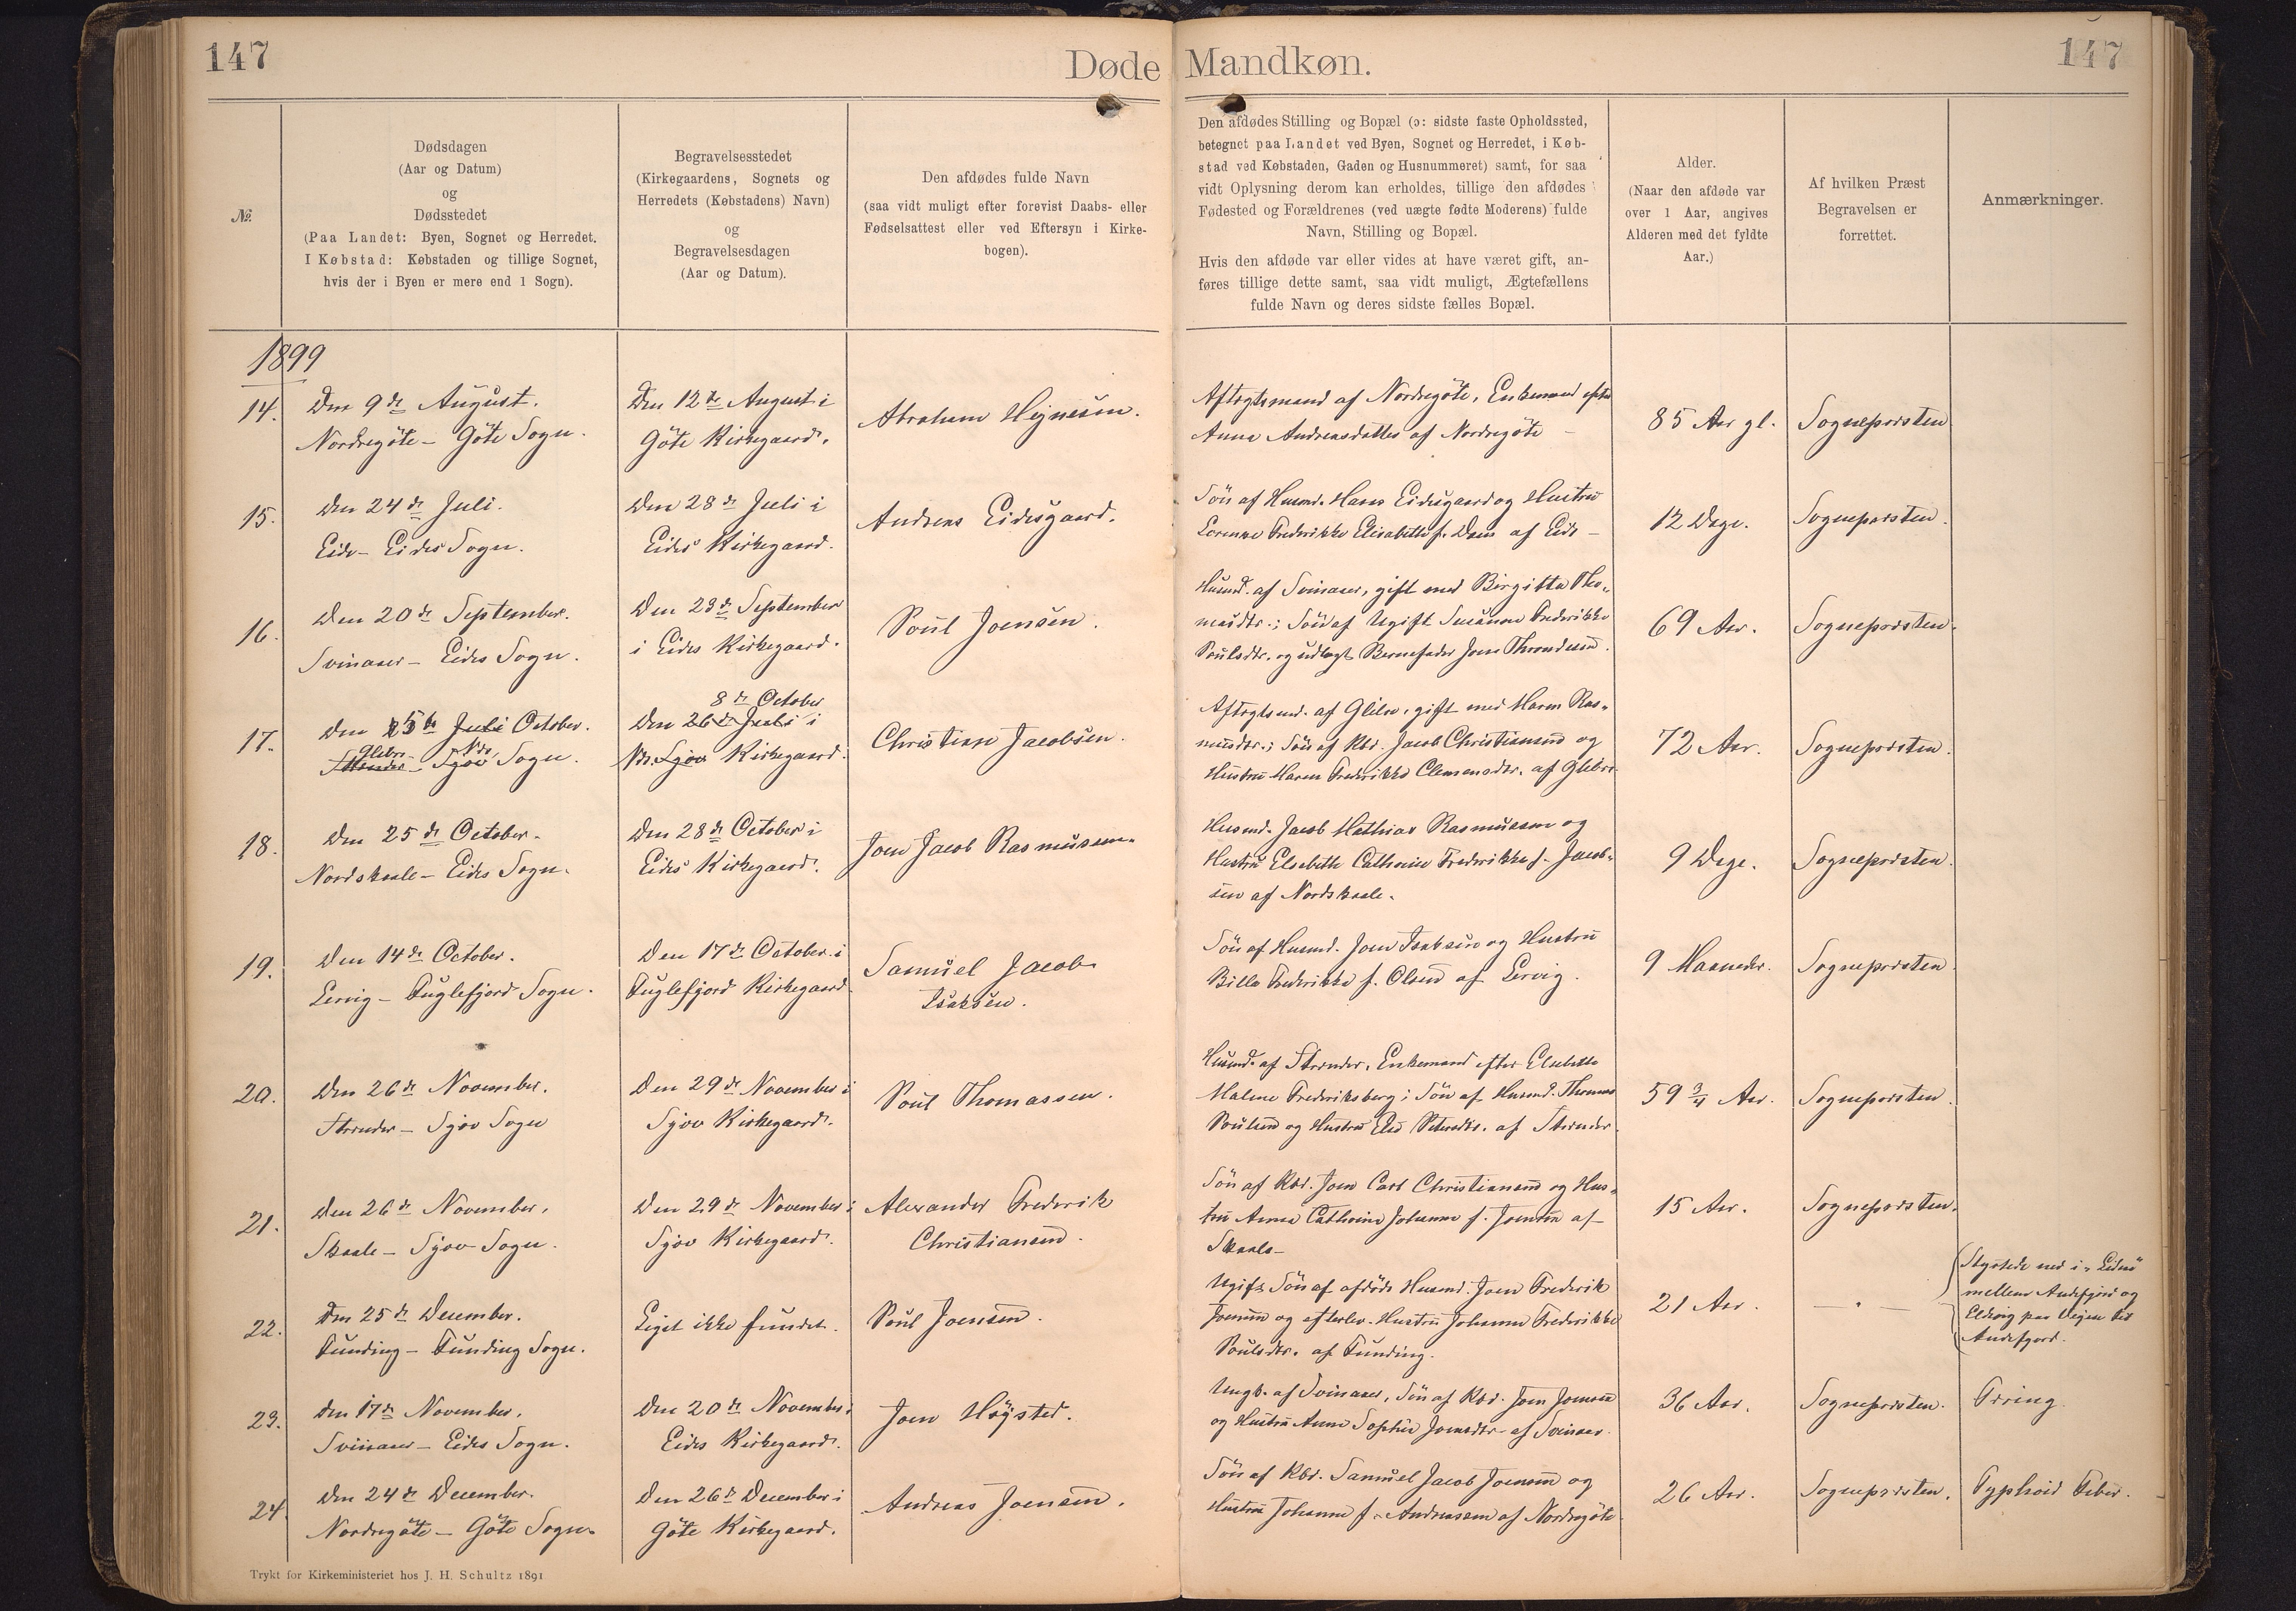 147
Døde Mandkøn.
147
№
Dødsdagen
(Aar og Datum)
og
Dødsstedet
(Paa Landet: Byen, Sognet og Herredet.
I Købstad: Købstaden og tillige Sognet,
hvis der i Byen er mere end 1 Sogn).
Begravelsesstedet
(Kirkegaardens, Sognets og
Herredets (Købstadens) Navn)
og
Begravelsesdagen
(Aar og Datum).
Den afdødes fulde Navn
(saa vidt muligt efter forevist Daabs- eller
Fødselsattest eller ved Eftersyn i Kirke-
bogen).
Den afdødes Stilling og Bopæl (ɔ: sidste faste Opholdssted,
betegnet paa Landet ved Byen, Sognet og Herredet, i Køb-
stad ved Købstaden, Gaden og Husnummeret) samt, for saa
vidt Oplysning derom kan erholdes, tillige den afdødes
Fødested og Forældrenes (ved uægte fødte Moderens) fulde
Navn, Stilling og Bopæl.
Hvis den afdøde var eller vides at have været gift, an-
føres tillige dette samt, saa vidt muligt, Ægtefællens
fulde Navn og deres sidste fælles Bopæl.
Alder.
(Naar den afdøde var
over 1 Aar, angives
Alderen med det fyldte
Aar.)
Af hvilken Præst
Begravelsen er
forrettet.
Anmærkninger.
1899
14.
Den 9de August.
Nordregöte - Göte Sogn.
Den 12te August i
Göte Kirkegaard.
Abraham Hejnesen.
Aftægtsmand af Nordregöte, Enkemand efter
Anna Andreasdatter af Nordregöte -
85 Aar gl.
Sognepræsten
15.
Den 24de Juli.
Eide - Eides Sogn.
Den 28de Juli i
Eides Kirkegaard.
Andreas Eidesgaard.
Sön af Husmd. Hans Eidesgaard og Hustru
Lorenze Frederikke Elisabeth f. Dam af Eide -
12 Dage.
Sognepræsten.
16.
Den 20de September.
Svinaaer - Eides Sogn.
Den 23de September
i Eides Kirkegaard.
Poul Joensen.
Husmd. af Svinaaer, gift med Birgitta Tho-
masdtr.; Sön af Ugift Susanne Frederikke
Poulsdtr. og udlagt Barnefader Joen Throndesen.
69 Aar.
Sognepræsten.
17.
Den 5te Juli October.
Glibre Strender - Ndr Sjov Sogn.
8de October
Den 26de Juli i
Ndr. Sjov Kirkegaard.
Christian Jacobsen.
Aftægtsmd. af Glibre, gift med Maren Ras-
musdtr.; Sön af Kbd. Jacob Christiansen og
Hustru Maren Frederikke Clemensdtr. af Glibre
72 Aar.
Sognepræsten.
18.
Den 25de October.
Nordskaale - Eides Sogn.
Den 28de October i
Eides Kirkegaard.
Joen Jacob Rasmussen.
Husmd. Jacob Mathias Rasmussen og
Hustru Elsebeth Cathrine Frederikke f. Jacob-
sen af Nordskaale.
9 Dage.
Sognepræsten.
19.
Den 14de October.
Lervig - Fuglefjord Sogn.
Den 17de October i
Fuglefjord Kirkegaard
Samuel Jacob
Isaksen.
Sön af Husmd. Joen Isaksen og Hustru
Bille Frederikke f. Olsen af Lervig.
9 Maaneder.
Sognepræsten.
20.
Den 26de November.
Strender - Sjov Sogn
Den 29de November i
Sjov Kirkegaard.
Poul Thomassen.
Husmd. af Strender, Enkemand efter Elsebette
Malene Frederiksberg; Sön af Husmd. Thomas
Poulsen og Hustru Else Petersdtr. af Strender.
59 3/4 Aar.
Sognepræsten.
21.
Den 26de November.
Skaale - Sjov Sogn.
Den 29de November i
Sjov Kirkegaard.
Alexander Frederik
Christiansen.
Sön af Kbd. Joen Carl Christiansen og Hus-
tru Anna Cathrine Johanne f. Joensen af
Skaale -
15 Aar.
Sognepræsten.
22.
Den 25de December.
Funding - Funding Sogn.
Liget ikke fundet.
Poul Joensen.
Ugift Sön af afdöde Husmd. Joen Frederik
Joensen og efterlev. Hustru Johanne Frederikke
Poulsdtr. af Funding.
21 Aar.
- " -
Styrtede ned i
mellem Andefjord og
Eldvig paa Vejen til
Andefjord.
23.
Den 17de November.
Svinaaer - Eides Sogn.
Den 20de November i
Eides Kirkegaard.
Joen Höjsted.
Ungk. af Svinaaer, Sön af Kbd. Joen Joensen
og Hustru Anne Sophie Joensdtr. af Svinaaer.
36 Aar.
Sognepræsten.
24.
Den 24de December.
Nordregöte - Göte Sogn.
Den 26de December i
Göte Kirkegaard.
Andreas Joensen.
Sön af Kbd. Samuel Jacob Joensen og
Hustru Johanne f. Andreasen af Nordregöte.
26 Aar.
Sognepræsten.
Typhoid Feber.
Trykt for Kirkeministeriet hos J. H. Schultz 1891